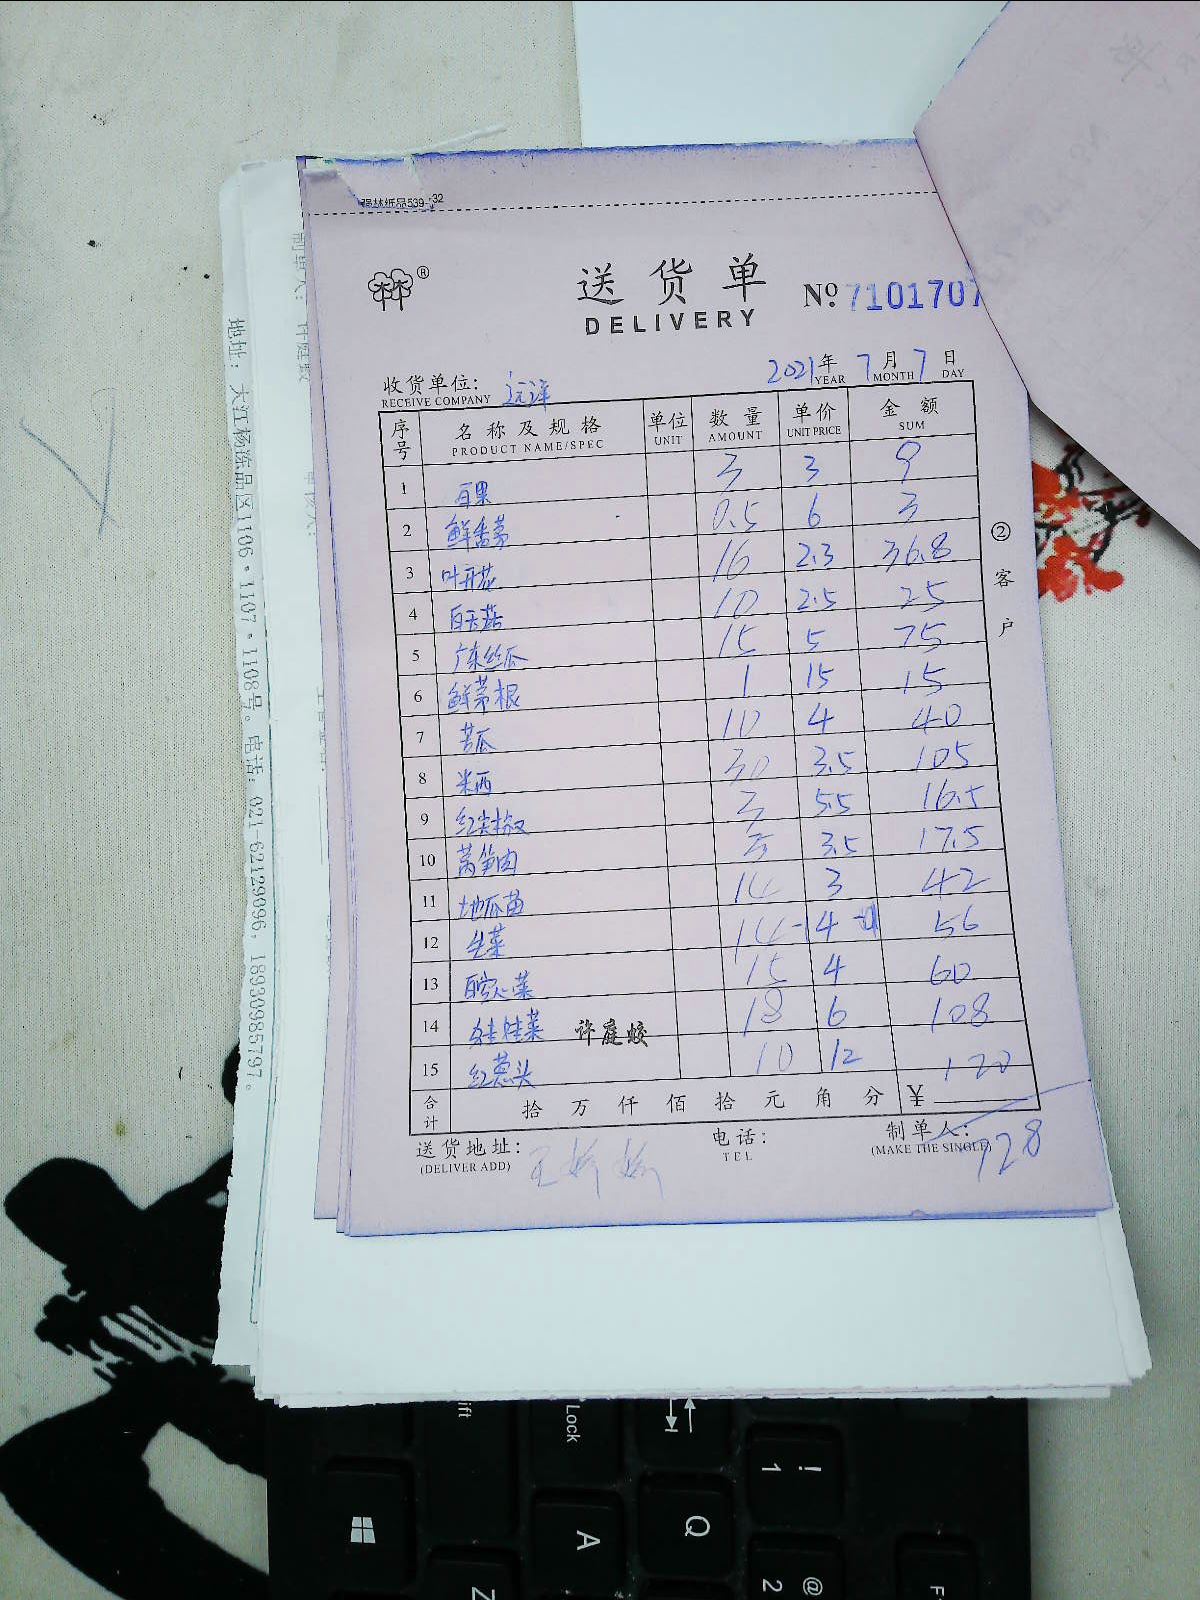 强林纸品539-32
送货单
DELIVERY
No. 7101707
收货单位: 远洋 2021年 7月 7日
RECEIVE COMPANY YEAR MONTH DAY
序号 名称及规格 单位 数量 单价 金额
PRODUCT NAME/SPEC UNIT AMOUNT UNIT PRICE SUM
1 百果 3 3 9
2 鲜香茅 0.5 6 3
3 叶开花 16 2.3 36.8
4 10 2.5 25
5 广东丝瓜 15 5 75
6 鲜茅根 1 15 15
7 苦瓜 10 4 40
8 米西 30 3.5 105
9 红尖椒 3 5.5 16.5
10 莴笋肉 5 3.5 17.5
11 地瓜苗 14 3 42
12 生菜 14 4 56
13 白空心菜 15 4 60
14 娃娃菜 许庭蛟 18 6 108
15 红葱头 10 12 120
合计 拾 万 仟 佰 拾 元 角 分 ¥
728
送货地址: 电话: 制单人:
(DELIVER ADD) TEL (MAKE THE SINGLE)
②客户
地址: 大江杨练品区1106·1107·1108号。电话: 021-62129096, 18930985797。
ift
Lock
! 1
A
Q
Z
@ 2
F